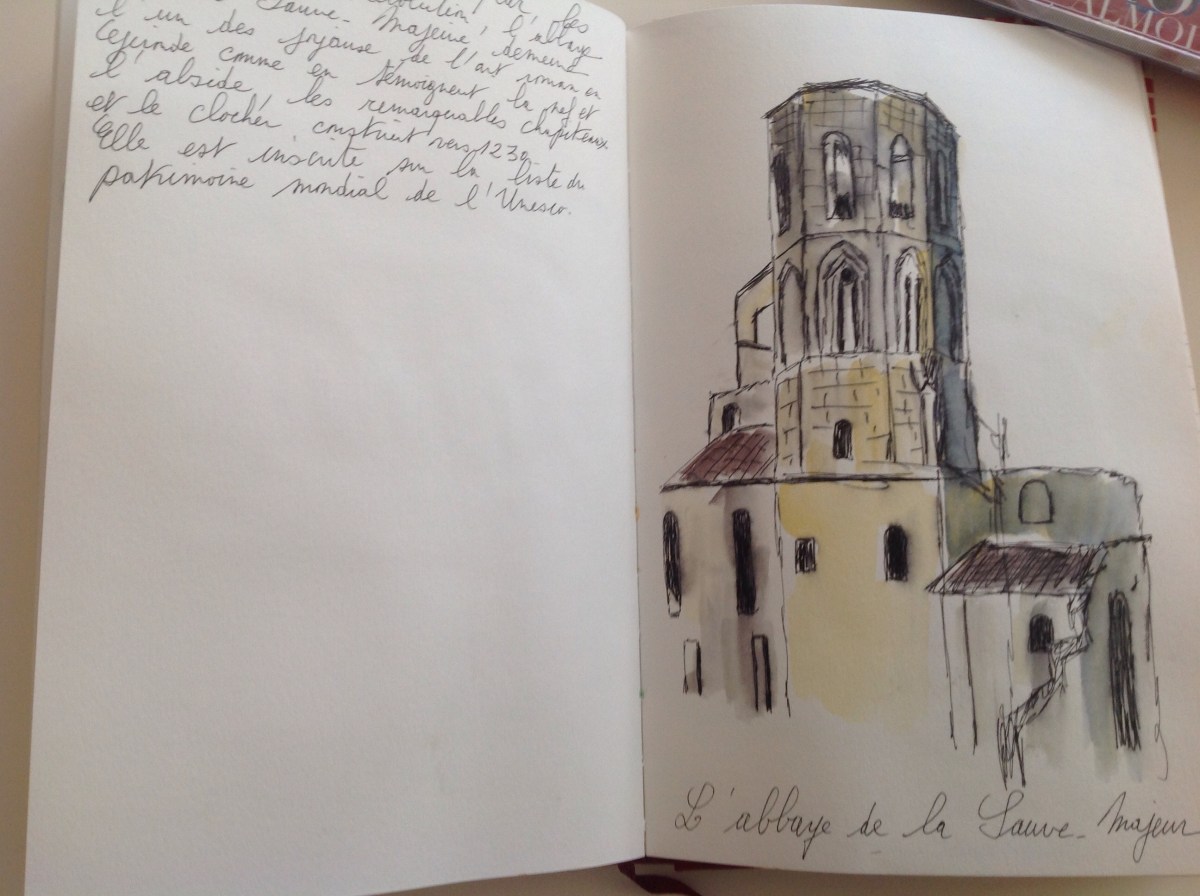 Révolution, l'abbaye
Sauve-Majeure, demeure
l'un des joyaux de l'art roman en
comme en témoignent la nef et
l'abside, les remarquables chapiteaux
et le clocher, construit vers 1230.
Elle est inscrite sur la liste du
patrimoine mondial de l'Unesco.
L'abbaye de la Sauve-Majeur
ALMO